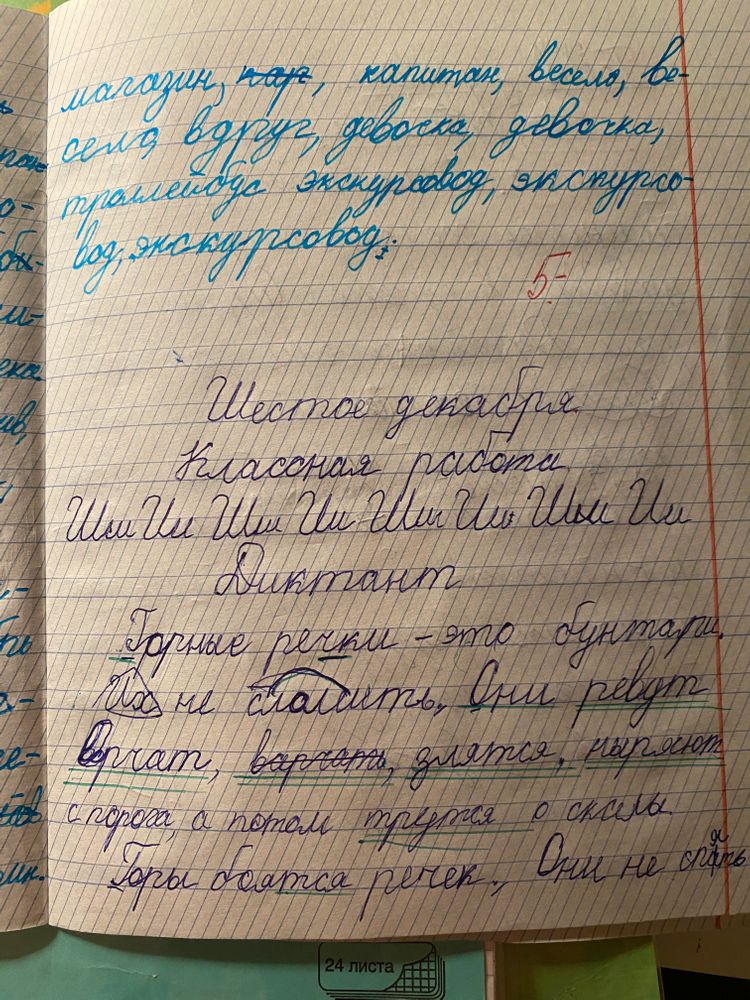 магазин, кар, капитан, весело, ве-
село, вдруг, девоска, девочка,
троллейбус экскурсовод, экскурсо-
вод, экскурсовод.
5-
Шестое декабря.
Классная работа
Шши Ии Шши Ии Шши Ии Шши Ии
Диктант
Горные речки - это бунтари.
Их не сломить. Они ревут
Ворчат, варчать, злятся, ныряют
с порога, а потом трутся о скалы
Горы боятся речек. Они не спять
24 листа